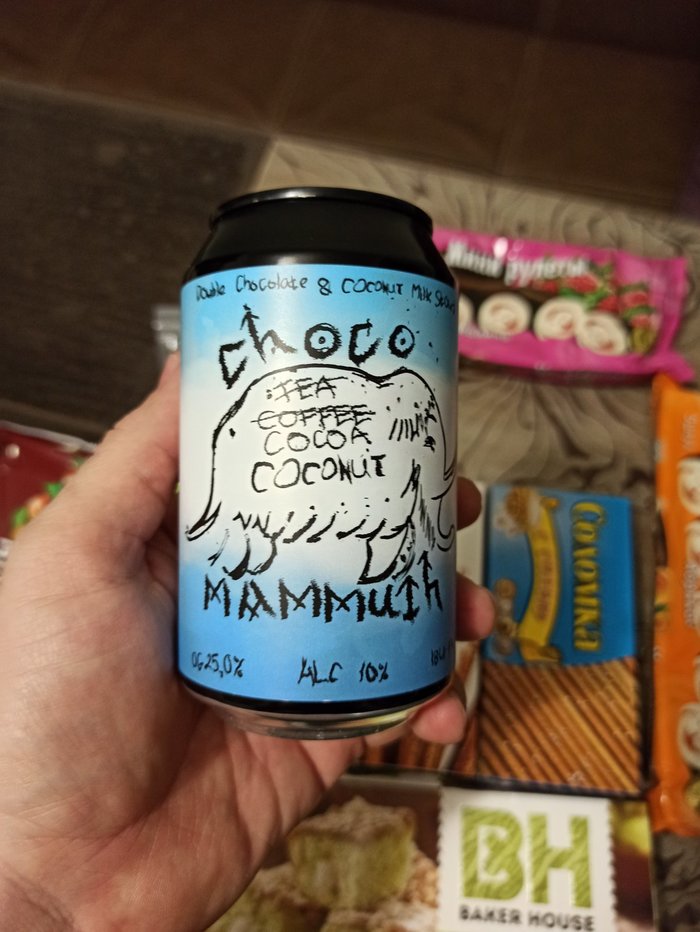 Double Chocolate & COCONUT Milk Stout
choco
TEA
COFFEE
COCOA
COCONUT
MAMMUTh
OG 25,0%
ALC 10%
IBU
Мини рулеты
Соломка
BH
BAKER HOUSE